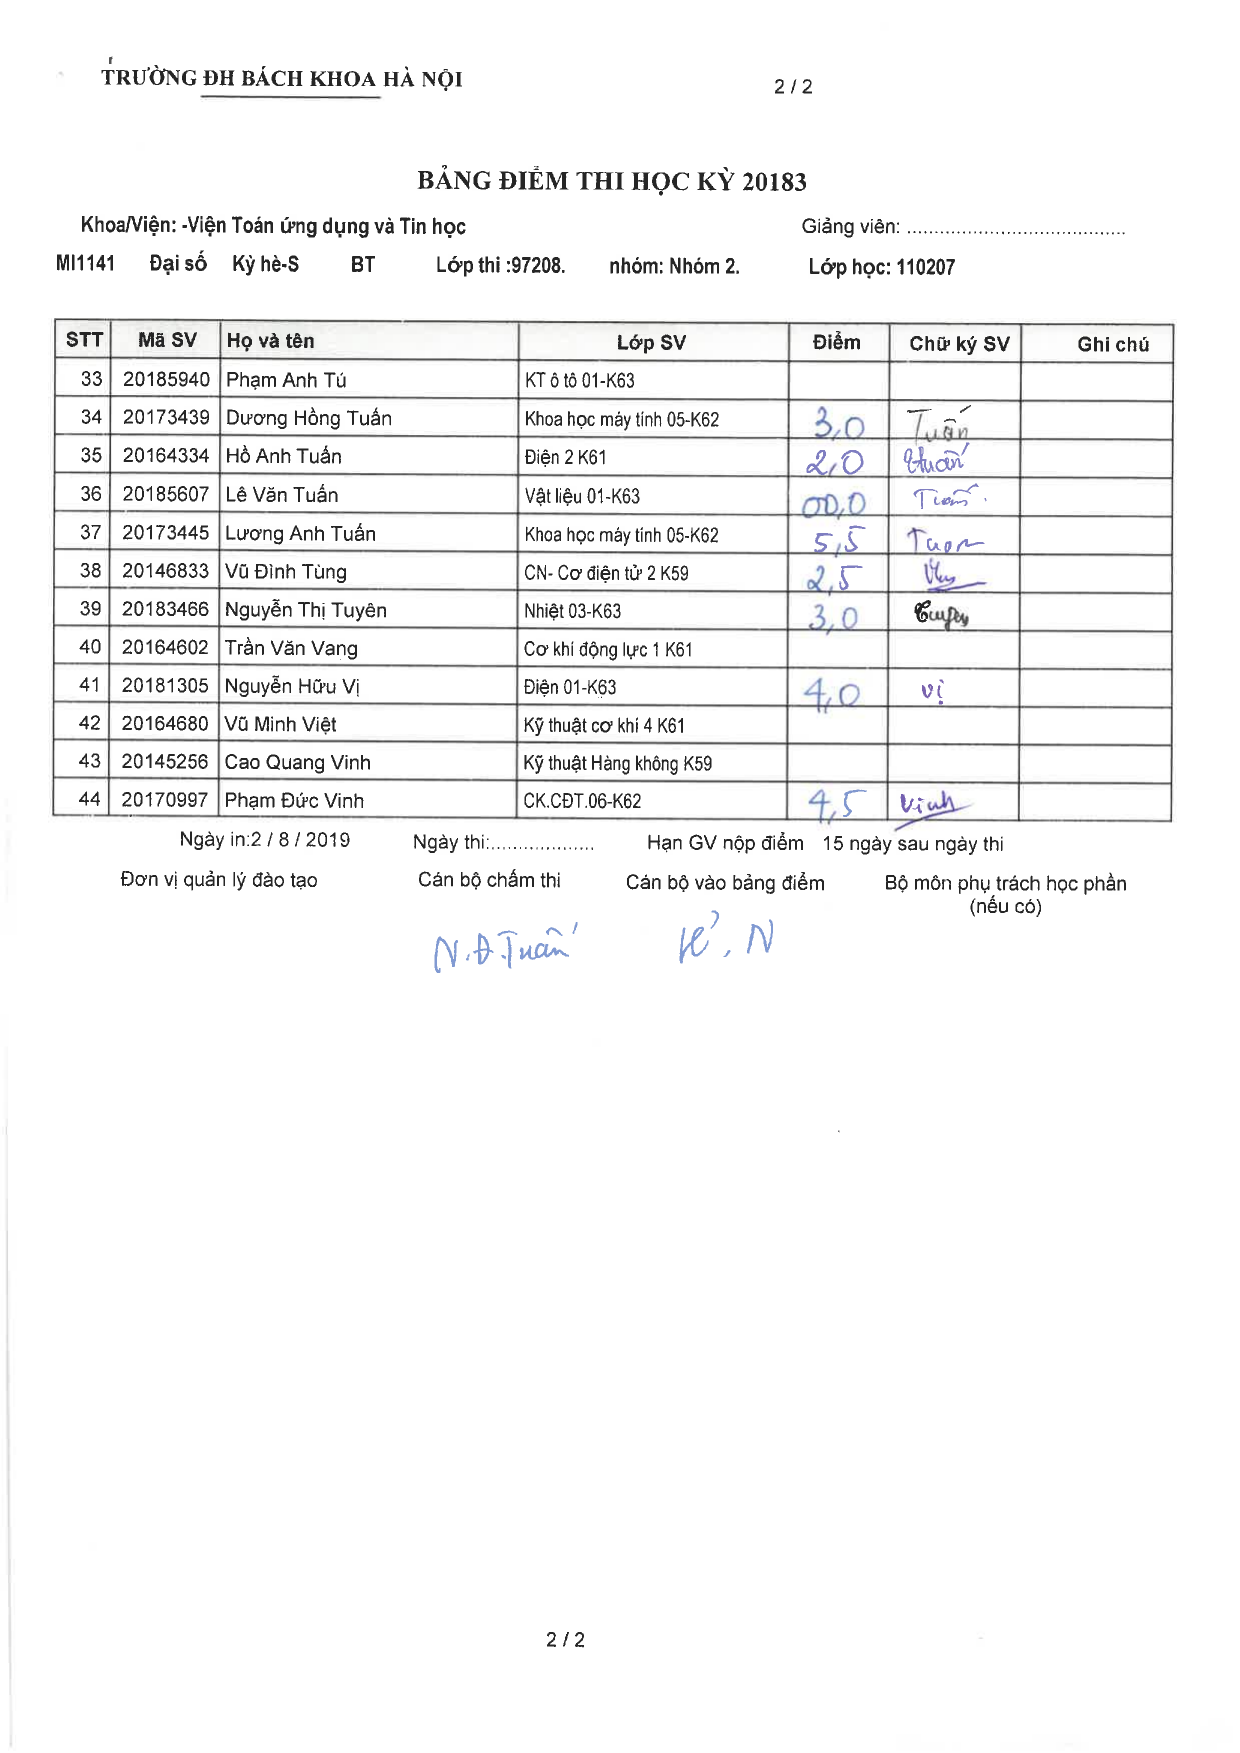 TRƯỜNG ĐH BÁCH KHOA HÀ NỘI
2 / 2
BẢNG ĐIỂM THI HỌC KỲ 20183
Khoa/Viện: -Viện Toán ứng dụng và Tin học Giảng viên: ........................................
MI1141 Đại số Kỳ hè-S BT Lớp thi :97208. nhóm: Nhóm 2. Lớp học: 110207
STT Mã SV Họ và tên Lớp SV Điểm Chữ ký SV Ghi chú
33 20185940 Phạm Anh Tú KT ô tô 01-K63
34 20173439 Dương Hồng Tuấn Khoa học máy tính 05-K62 3,0 Tuấn
35 20164334 Hồ Anh Tuấn Điện 2 K61 2,0 tuấn
36 20185607 Lê Văn Tuấn Vật liệu 01-K63 00,0 Tuấn
37 20173445 Lương Anh Tuấn Khoa học máy tính 05-K62 5,5
38 20146833 Vũ Đình Tùng CN- Cơ điện tử 2 K59 2,5
39 20183466 Nguyễn Thị Tuyên Nhiệt 03-K63 3,0
40 20164602 Trần Văn Vang Cơ khí động lực 1 K61
41 20181305 Nguyễn Hữu Vị Điện 01-K63 4,0 vị
42 20164680 Vũ Minh Việt Kỹ thuật cơ khí 4 K61
43 20145256 Cao Quang Vinh Kỹ thuật Hàng không K59
44 20170997 Phạm Đức Vinh CK.CĐT.06-K62 4,5 Vinh
Ngày in:2 / 8 / 2019 Ngày thi:................... Hạn GV nộp điểm 15 ngày sau ngày thi
Đơn vị quản lý đào tạo Cán bộ chấm thi Cán bộ vào bảng điểm Bộ môn phụ trách học phần
(nếu có)
N.Đ.Tuấn
2 / 2